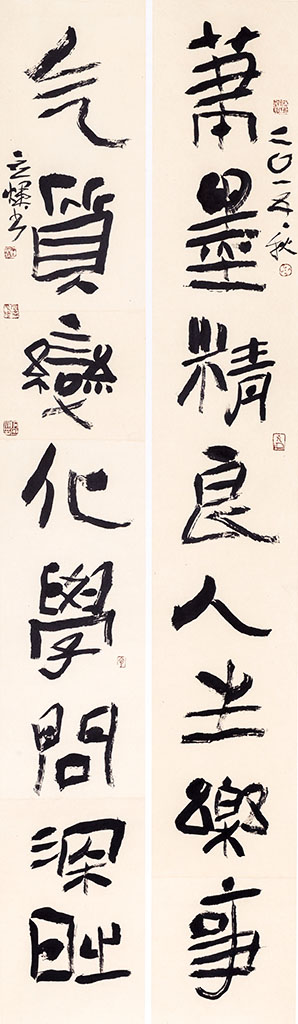 筆墨精良人生樂事
二〇一五·秋
气質變化學問深時